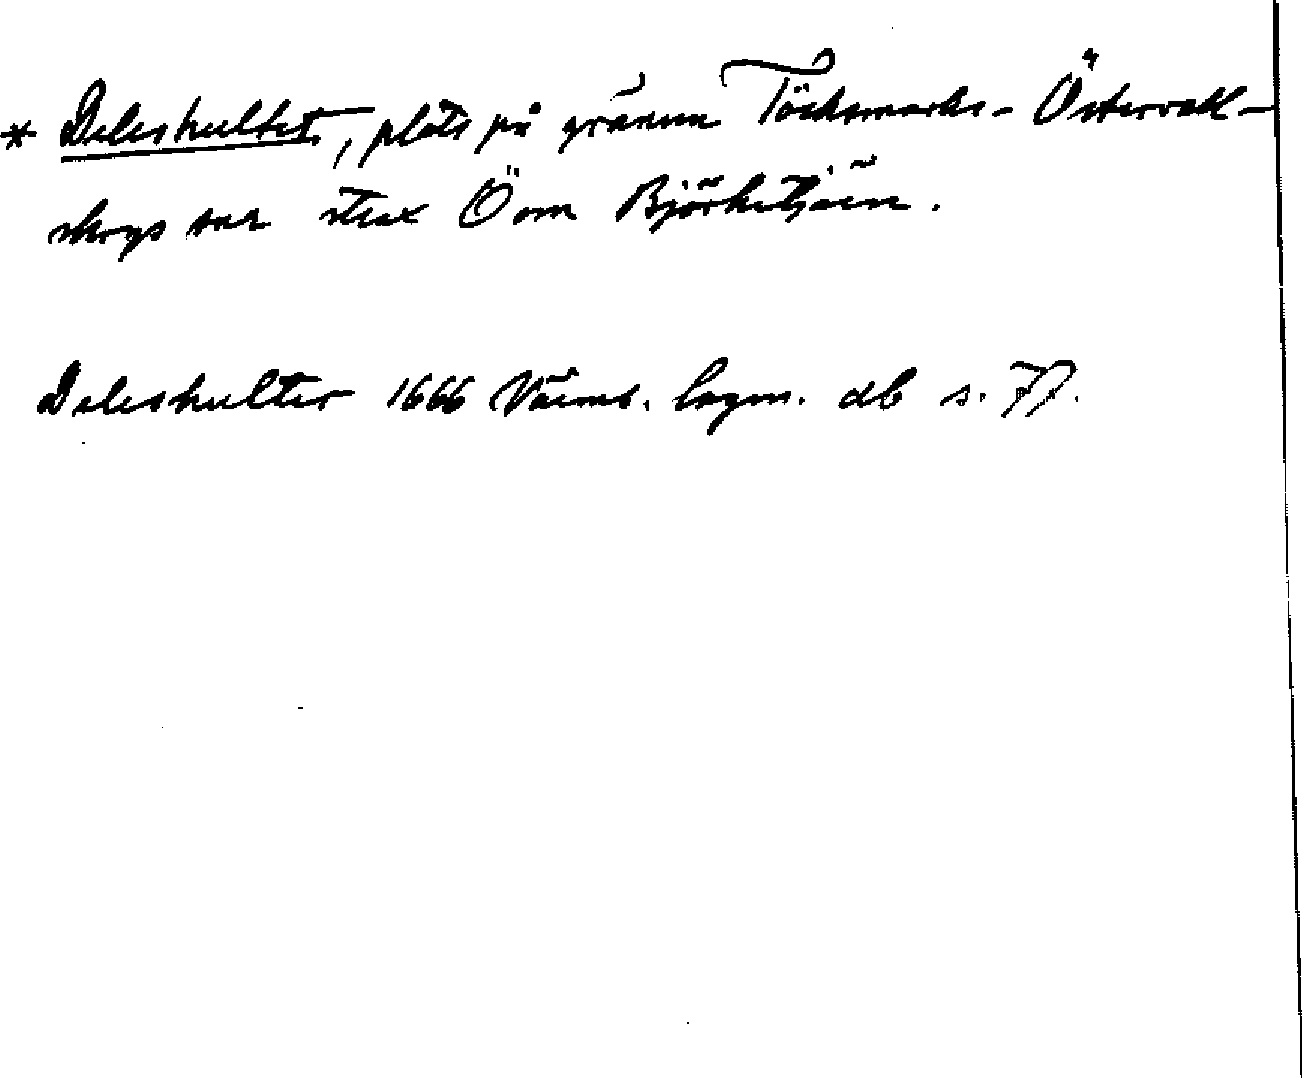 * Deleshultet, plats på gränsen Töcksmarks- Östervall-
skogs snr strax Ö om Björketjärn.
Deleshulter 1666 Värml. lagm. db s. 77.